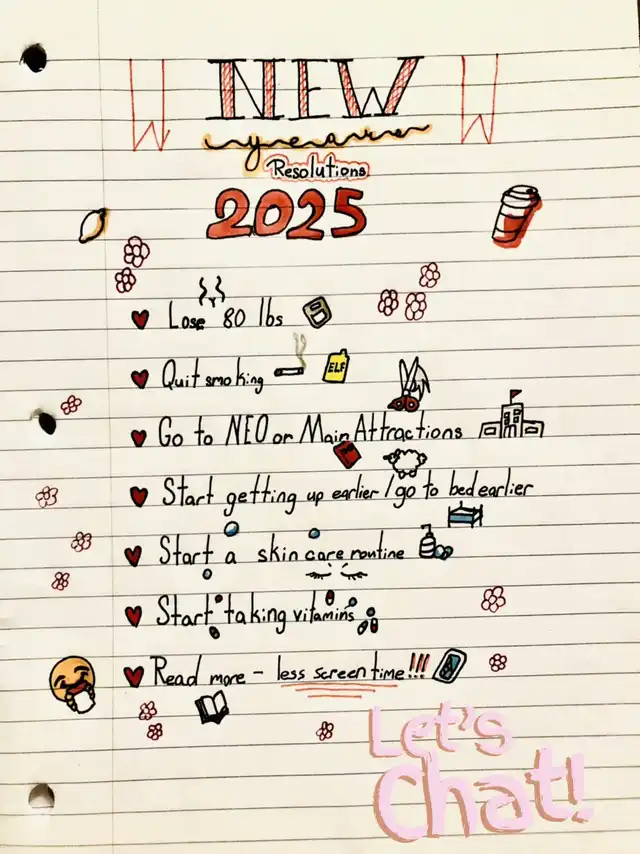 NEW
years
Resolutions
2025
Lose 80 lbs
Quit smoking
ELF
Go to NEO or Main Attractions
Start getting up earlier / go to bed earlier
Start a skin care routine
Start taking vitamins
Read more - less screen time!!!
Let's
Chat!